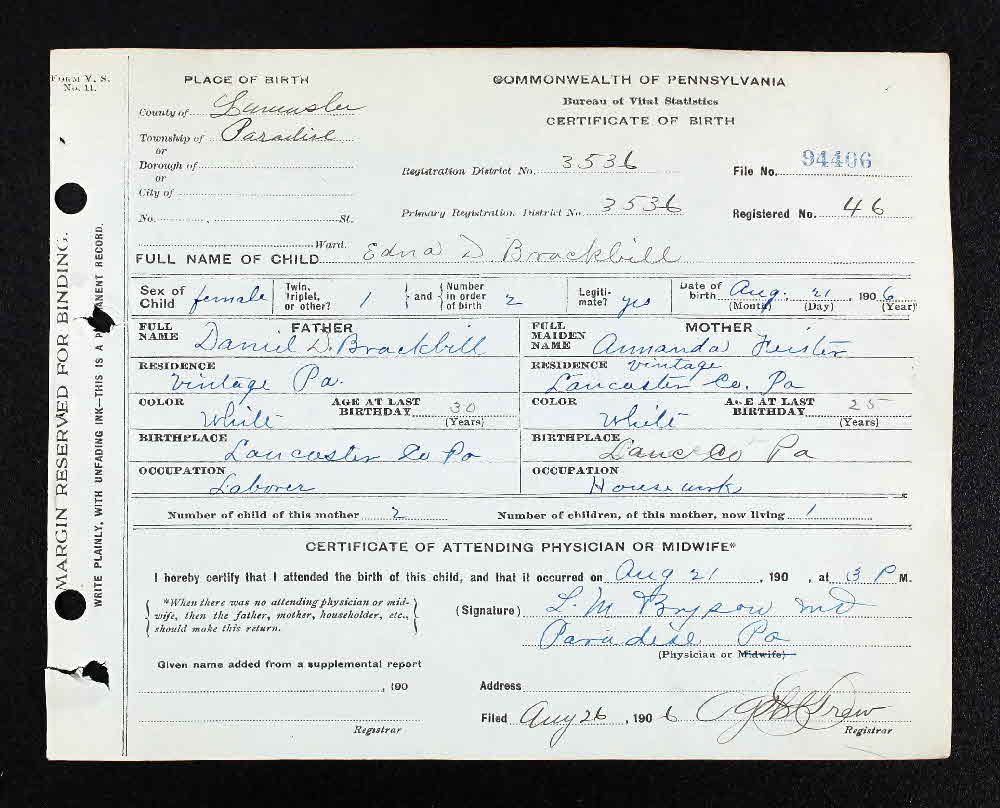 FORM V. S. No. 11.
MARGIN RESERVED FOR BINDING.
WRITE PLAINLY, WITH UNFADING INK—THIS IS A PERMANENT RECORD.
PLACE OF BIRTH
County of Lancaster
Township of Paradise
or
Borough of
or
City of
No. , St.
Ward.
COMMONWEALTH OF PENNSYLVANIA
Bureau of Vital Statistics
CERTIFICATE OF BIRTH
Registration District No. 3536
File No. 94406
Primary Registration District No. 3536
Registered No. 46
FULL NAME OF CHILD Edna D Brackbill
Sex of Child female
Twin, Triplet, or other? 1
and Number in order of birth 2
Legitimate? yes
Date of birth Aug. 21 1906
(Month) (Day) (Year)
FATHER
FULL NAME Daniel D. Brackbill
RESIDENCE Vintage Pa.
COLOR White
AGE AT LAST BIRTHDAY 30 (Years)
BIRTHPLACE Lancaster Co Pa
OCCUPATION Laborer
MOTHER
FULL MAIDEN NAME Annanda Feister
RESIDENCE Vintage
Lancaster Co. Pa
COLOR White
AGE AT LAST BIRTHDAY 25 (Years)
BIRTHPLACE Lanc Co Pa
OCCUPATION Housework
Number of child of this mother 2
Number of children, of this mother, now living 1
CERTIFICATE OF ATTENDING PHYSICIAN OR MIDWIFE*
I hereby certify that I attended the birth of this child, and that it occurred on Aug 21 , 190 , at 3 P M.
*When there was no attending physician or midwife, then the father, mother, householder, etc., should make this return.
(Signature) L. M Bryson MD
Paradise Pa
(Physician or Midwife)
Given name added from a supplemental report
, 190
Registrar
Address
Filed Aug 26 , 1906
Registrar